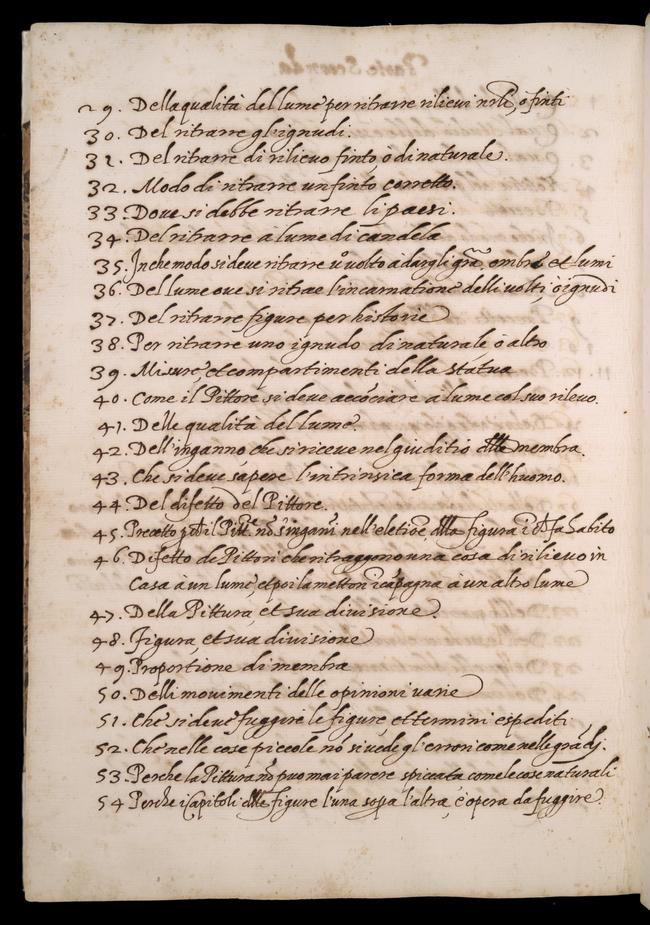 29. Della qualità del lume per ritrarre rilievi nrli, o finti
30. Del ritrarre gl'ignudi.
31. Del ritrarre di rilievo finto, o di naturale.
32. Modo di ritrarre un finto corretto.
33. Dove si debbe ritrarre li paesi.
34. Del ritrarre a lume di candela
35. In che modo si deve ritrarre u° volto à dargli grã ombre et lumi
36. Del lume ove si ritrae l'incarnatione delli volti, ò ignudi
37. Del ritrarre figure per historie
38. Per ritrarre uno ignudo di naturale ò altro
39. Misure, et compartimenti della statua
40. Come il Pittore si deve accõciare a lume col suo rilevo.
41. Delle qualità del lume.
42. Dell'inganno che si riceve nel giuditio delle membra.
43. Che si deve sapere l'intrinsica forma dell'huomo.
44. Del difetto del Pittore.
45. Precetto il Pitre nõ s'ingani nell'eletiõe della figura fa habito
46. Difetto de Pittori che ritraggono una cosa di rilievo in
Casa à un lume, et poi la metton ĩ cãpagna à un altro lume
47. Della Pittura, et sua divisione.
48. Figura, et sua divisione
49. Proportione di membra
50. Delli movimenti delle opinioni varie
51. Che si deve fuggire le figure, et termini espediti.
52. Che nelle cose piccole nõ si vede gl'errori come nelle grãdi.
53. Perche la Pittura nõ puo mai parere spiccata come le cose naturali
54 Perche i Capitoli delle figure l'una sopa l'altra, è opera da fuggire.